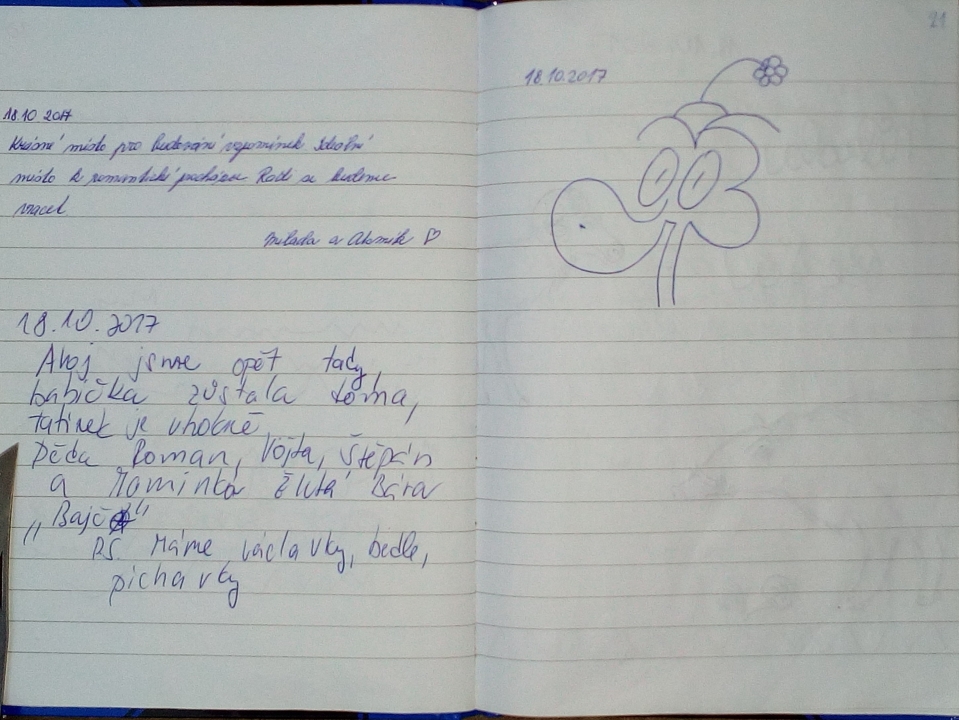 18.10 2017
Krásné místo pro budování vzpomínek Ideální
místo k romantické procházce Rádi se budeme
vracet
Milada a
18.10.2017
Ahoj jsme opět tady,
babička zůstala doma,
tatínek je v
Děda Roman, Vojta, Štěpán
a Maminka Žlutá Bára
„Bajč
PS Máme václavky, bedle,
pichavky
21
18.10.2017